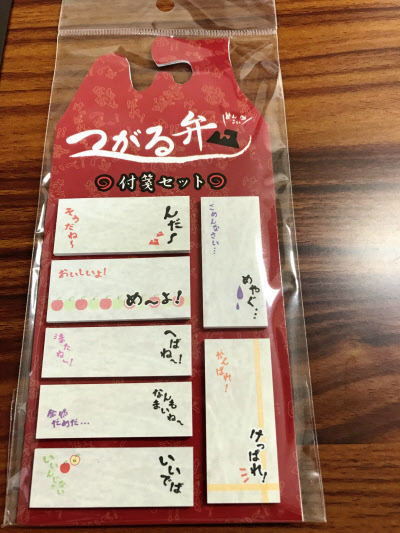 つがる弁
付箋セット
そうだね〜
んだ〜
おいしいよ!
め〜よ!
またね〜!
へばね〜!
もう
だめだ…
なんも
まいね〜
いいんじゃない
いいでば
ごめんなさい…
めやぐ…
がんばれ!
けっぱれ!